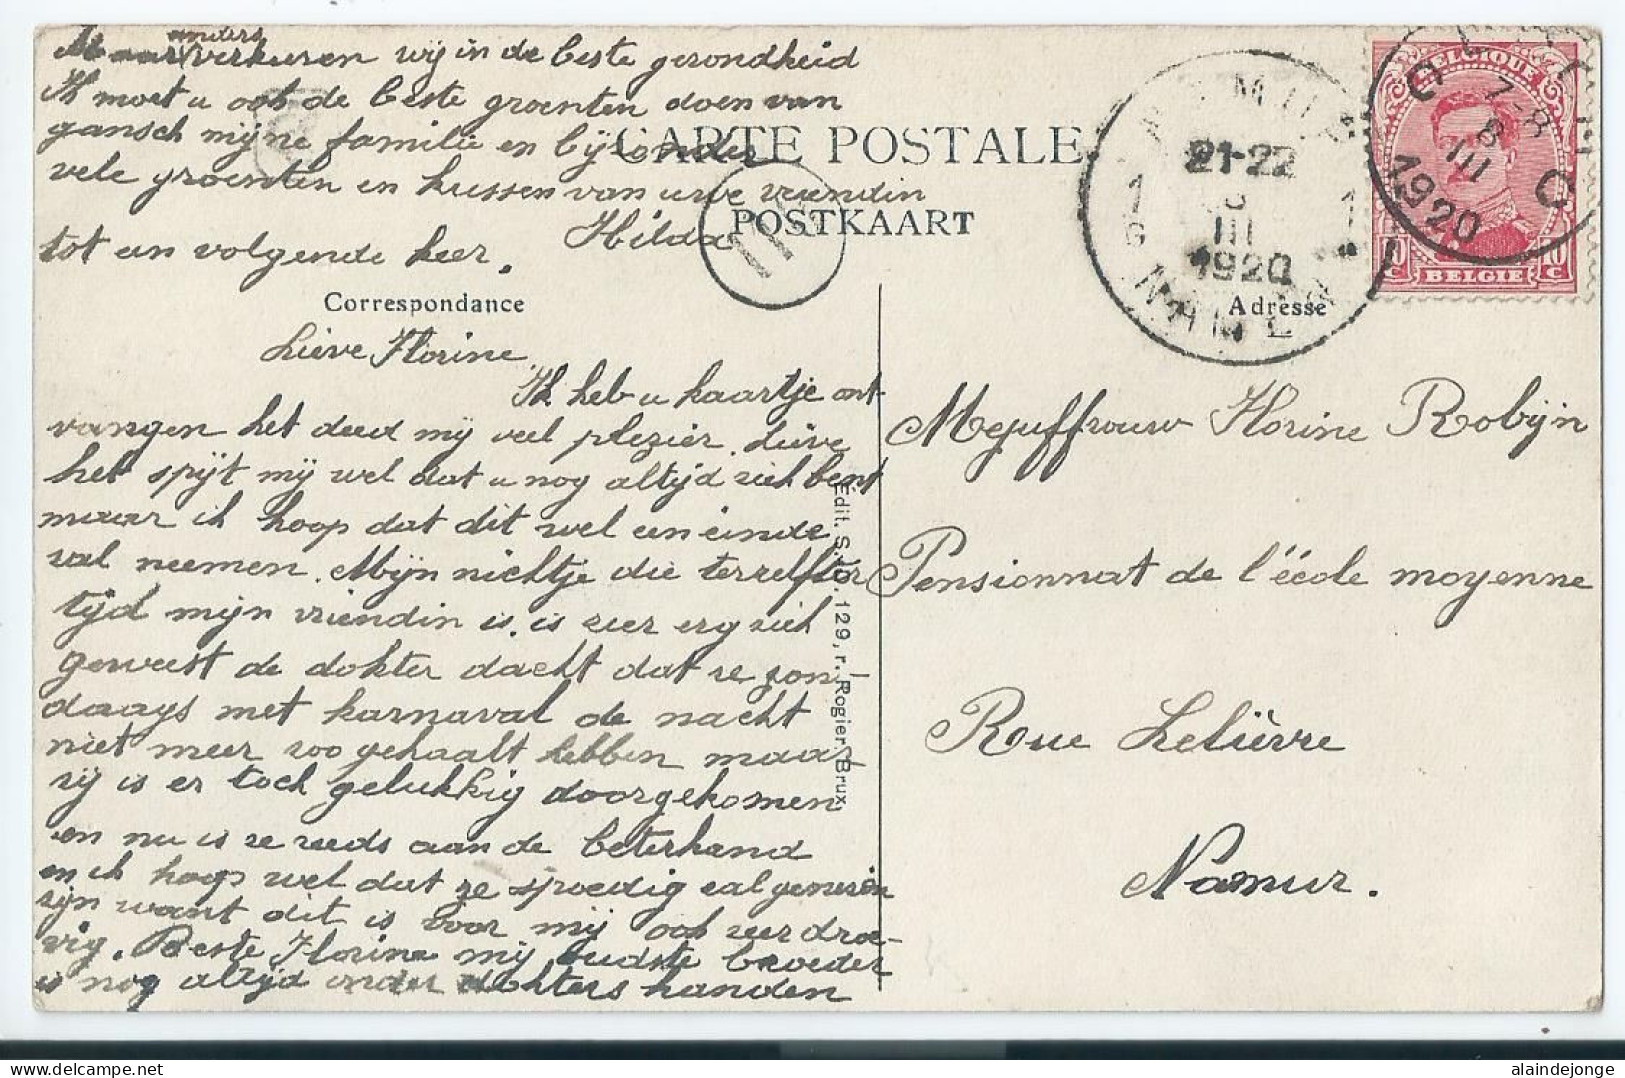 Maar anders verkeren wij in de beste gezondheid
Ik moet u ook de beste groenten doen van
gansch mijne familie en bijzonder
vele groenten en kussen van uwe vriendin
Hilda
tot een volgende keer.
CARTE POSTALE
POSTKAART
Correspondance
Adresse
Lieve Florine
Ik heb u kaartje ont-
vangen het deed mij veel plezier. Lieve
het spijt mij wel dat u nog altijd ziek bent
maar ik hoop dat dit wel een einde
zal neemen. Mijn nichtje die terzelfder
tijd mijn vriendin is, is zeer erg ziek
geweest de dokter dacht dat ze zon-
daags met karnaval de nacht
niet meer zoo gehaalt hebben maar
zij is er toch gelukkig doorgekomen
en nu is ze reeds aan de beterhand
en ik hoop wel dat ze spoedig zal genezen
zijn want dit is voor mij ook zeer droe-
vig. Beste Florine mij oudste broeder
is nog altijd onder dokters handen
Édit. S. D. 129, r. Rogier Brux.
Mejuffrouw Florine Robijn
Pensionnat de l'école moyenne
Rue Lelièvre
Namur.
21-22
III
1920
NAMEN
BELGIQUE
BELGIE
10 C
10 C
7-8
8
III
1920
alaindejonge